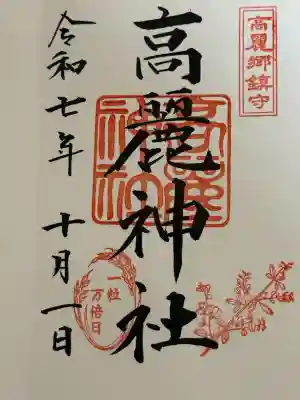 高麗郷鎮守
高麗神社
令和七年 十月一日
一粒
万倍日